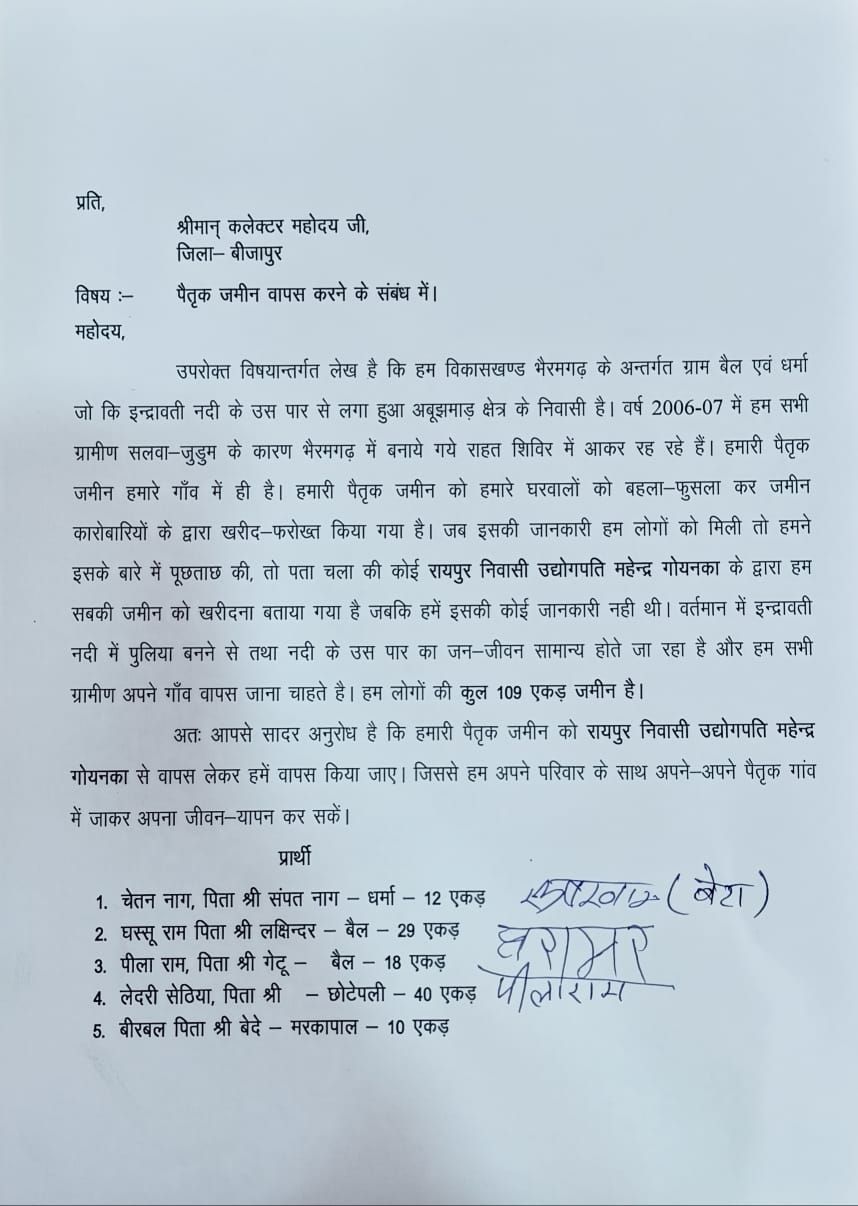 प्रति,
श्रीमान् कलेक्टर महोदय जी,
जिला– बीजापुर
विषय :– पैतृक जमीन वापस करने के संबंध में।
महोदय,
उपरोक्त विषयान्तर्गत लेख है कि हम विकासखण्ड भैरमगढ़ के अन्तर्गत ग्राम बैल एवं धर्मा
जो कि इन्द्रावती नदी के उस पार से लगा हुआ अबूझमाड़ क्षेत्र के निवासी है। वर्ष 2006-07 में हम सभी
ग्रामीण सलवा–जुडुम के कारण भैरमगढ़ में बनाये गये राहत शिविर में आकर रह रहे हैं। हमारी पैतृक
जमीन हमारे गाँव में ही है। हमारी पैतृक जमीन को हमारे घरवालों को बहला–फुसला कर जमीन
कारोबारियों के द्वारा खरीद–फरोख्त किया गया है। जब इसकी जानकारी हम लोगों को मिली तो हमने
इसके बारे में पूछताछ की, तो पता चला की कोई रायपुर निवासी उद्योगपति महेन्द्र गोयनका के द्वारा हम
सबकी जमीन को खरीदना बताया गया है जबकि हमें इसकी कोई जानकारी नही थी। वर्तमान में इन्द्रावती
नदी में पुलिया बनने से तथा नदी के उस पार का जन–जीवन सामान्य होते जा रहा है और हम सभी
ग्रामीण अपने गाँव वापस जाना चाहते है। हम लोगों की कुल 109 एकड़ जमीन है।
अतः आपसे सादर अनुरोध है कि हमारी पैतृक जमीन को रायपुर निवासी उद्योगपति महेन्द्र
गोयनका से वापस लेकर हमें वापस किया जाए। जिससे हम अपने परिवार के साथ अपने–अपने पैतृक गांव
में जाकर अपना जीवन–यापन कर सकें।
प्रार्थी
1. चेतन नाग, पिता श्री संपत नाग – धर्मा – 12 एकड़ (बेटा)
2. घस्सू राम पिता श्री लक्षिन्दर – बैल – 29 एकड़
3. पीला राम, पिता श्री गेटू – बैल – 18 एकड़
4. लेदरी सेठिया, पिता श्री – छोटेपली – 40 एकड़ पीलाराम
5. बीरबल पिता श्री बेदे – मरकापाल – 10 एकड़